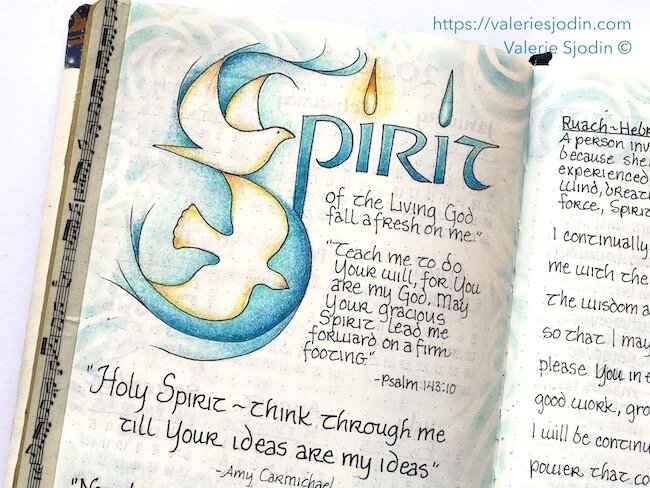 https://valeriesjodin.com
Valerie Sjodin ©
Spirit
of the Living God
fall afresh on me."
"Teach me to do
Your will, for You
are my God. May
Your gracious
Spirit lead me
forward on a firm
footing."
-Psalm 143:10
"Holy Spirit ~ think through me
till Your ideas are my ideas"
-Amy Carmichael
Ruach~Hebr
A person inv
because she
experienced
wind, breat
force, Spirit
I continually
me with the
the wisdom a
so that I may
please You in t
good work, gro
I will be continu
power that co